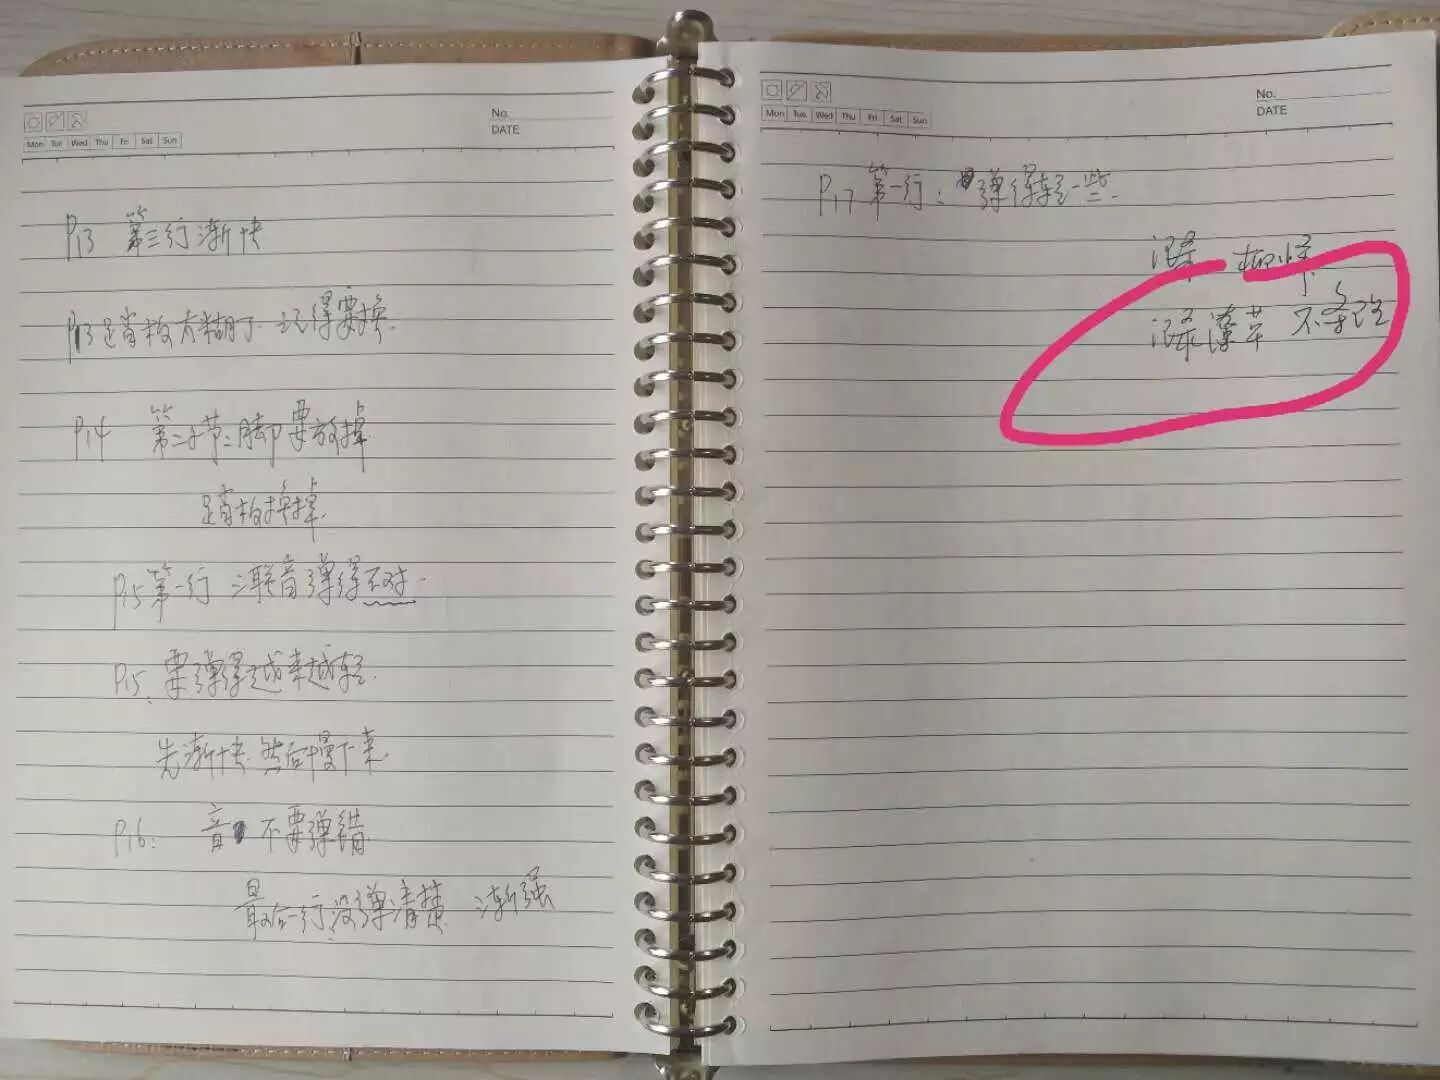 No.
DATE
Mon Tue Wed Thu Fri Sat Sun
P13 第三行渐快
P13 踏板太糊了 记得要换.
P14 第二小节:脚要放掉
踏板换掉.
P15 第一行 三联音弹得不对.
P15. 要弹得越来越轻.
先渐快.然后慢下来.
P16: 音 不要弹错.
最后一行没弹清楚. 渐强
No.
DATE
Mon Tue Wed Thu Fri Sat Sun
P17 第一行: 弹得轻一些.